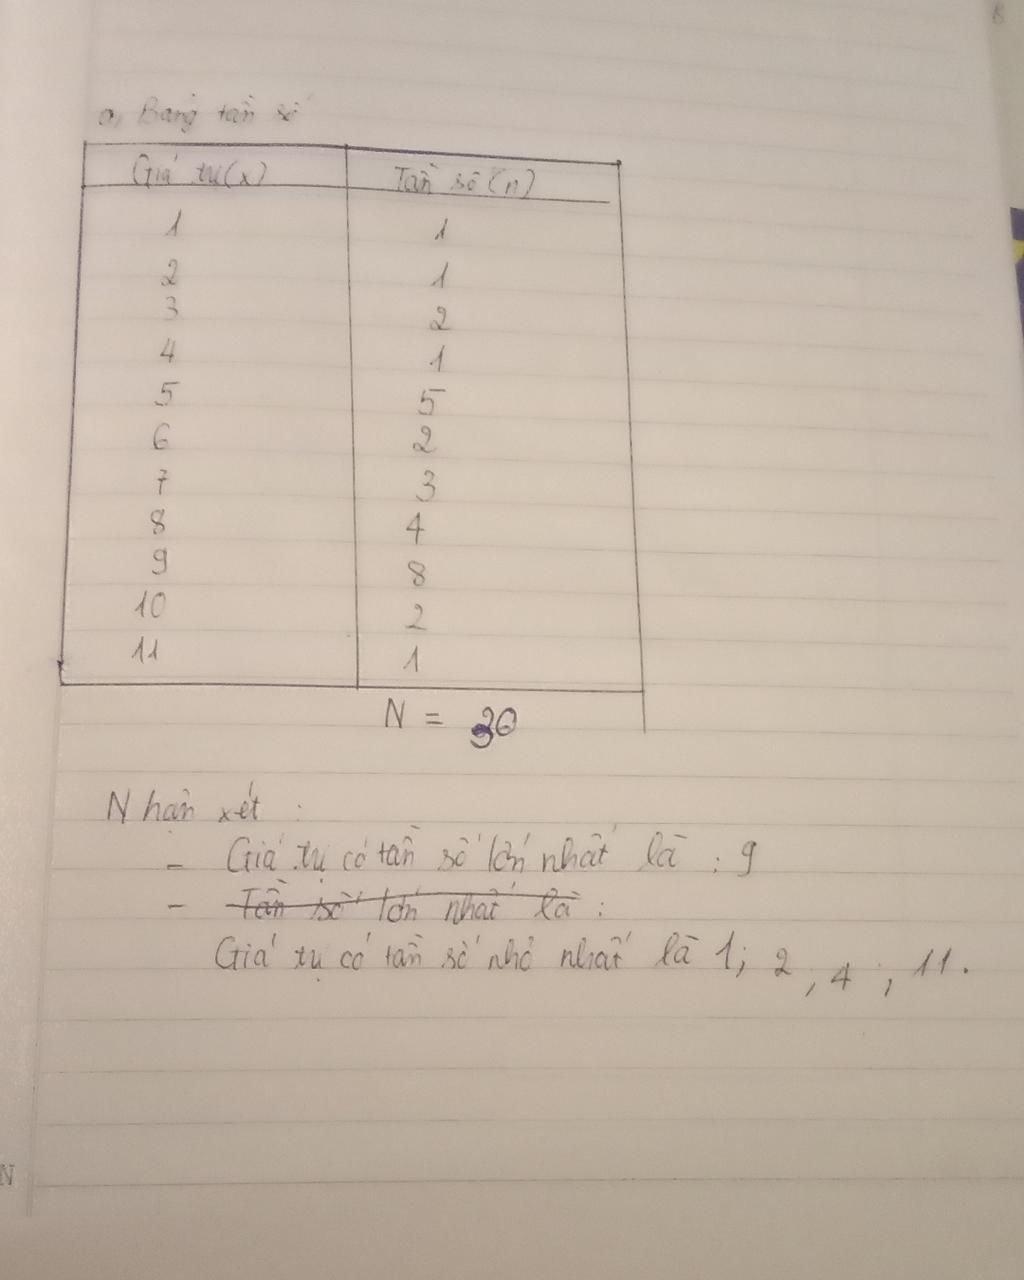 a, Bảng tần số
Giá trị (x) Tần số (n)
1 1
2 1
3 2
4 1
5 5
6 2
7 3
8 4
9 8
10 2
11 1
N = 30
Nhận xét :
- Giá trị có tần số lớn nhất là : 9
- Tần số lớn nhất là :
Giá trị có tần số nhỏ nhất là 1; 2 ; 4 ; 11.
N